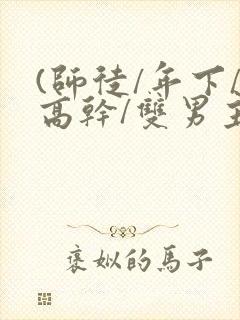 (師徒/年下/
高幹/雙男主
褒姒的馬子